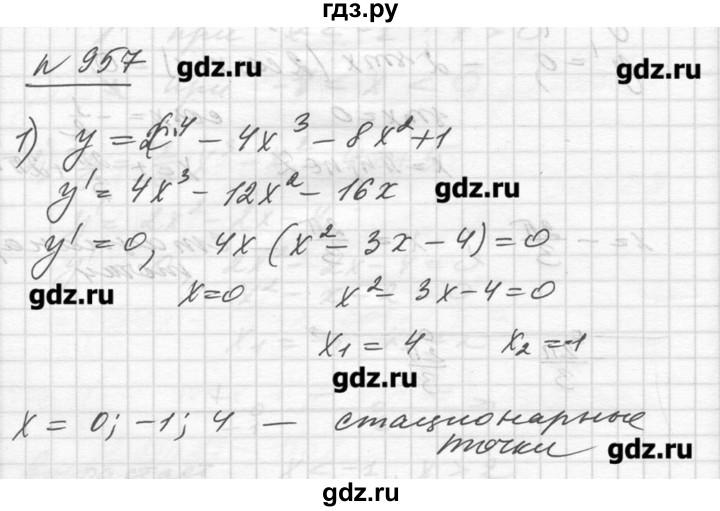 гдз.ру
n 957
gdz.ru
gdz.ru
1) y = x⁴ - 4x³ - 8x² + 1
y' = 4x³ - 12x² - 16x
gdz.ru
y' = 0, 4x (x² - 3x - 4) = 0
gdz.ru
x = 0 x² - 3x - 4 = 0
x₁ = 4 x₂ = -1
gdz.ru
x = 0; -1; 4 — стационарные
точки
gdz.ru
gdz.ru